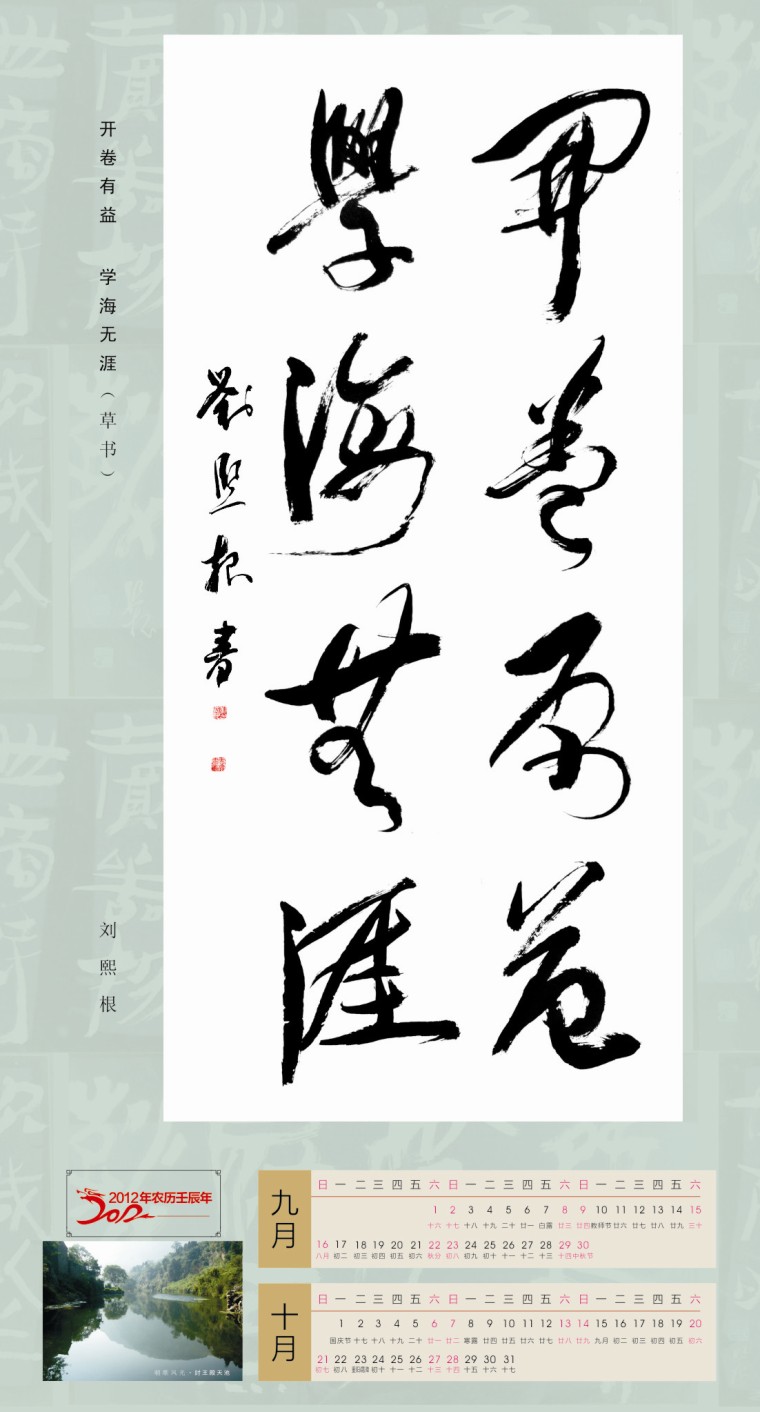 開卷有益
學海無涯
劉熙根書
开卷有益 学海无涯（草书）
刘熙根
2012年农历壬辰年
2012
九月
日 一 二 三 四 五 六 日 一 二 三 四 五 六 日 一 二 三 四 五 六
1 2 3 4 5 6 7 8 9 10 11 12 13 14 15
十六 十七 十八 十九 二十 廿一 白露 廿三 廿四 教师节 廿六 廿七 廿八 廿九 三十
16 17 18 19 20 21 22 23 24 25 26 27 28 29 30
八月 初二 初三 初四 初五 初六 秋分 初八 初九 初十 十一 十二 十三 十四 中秋节
十月
日 一 二 三 四 五 六 日 一 二 三 四 五 六 日 一 二 三 四 五 六
1 2 3 4 5 6 7 8 9 10 11 12 13 14 15 16 17 18 19 20
国庆节 十七 十八 十九 二十 廿一 廿二 寒露 廿四 廿五 廿六 廿七 廿八 廿九 九月 初二 初三 初四 初五 初六
21 22 23 24 25 26 27 28 29 30 31
初七 初八 重阳节 初十 十一 十二 十三 十四 十五 十六 十七